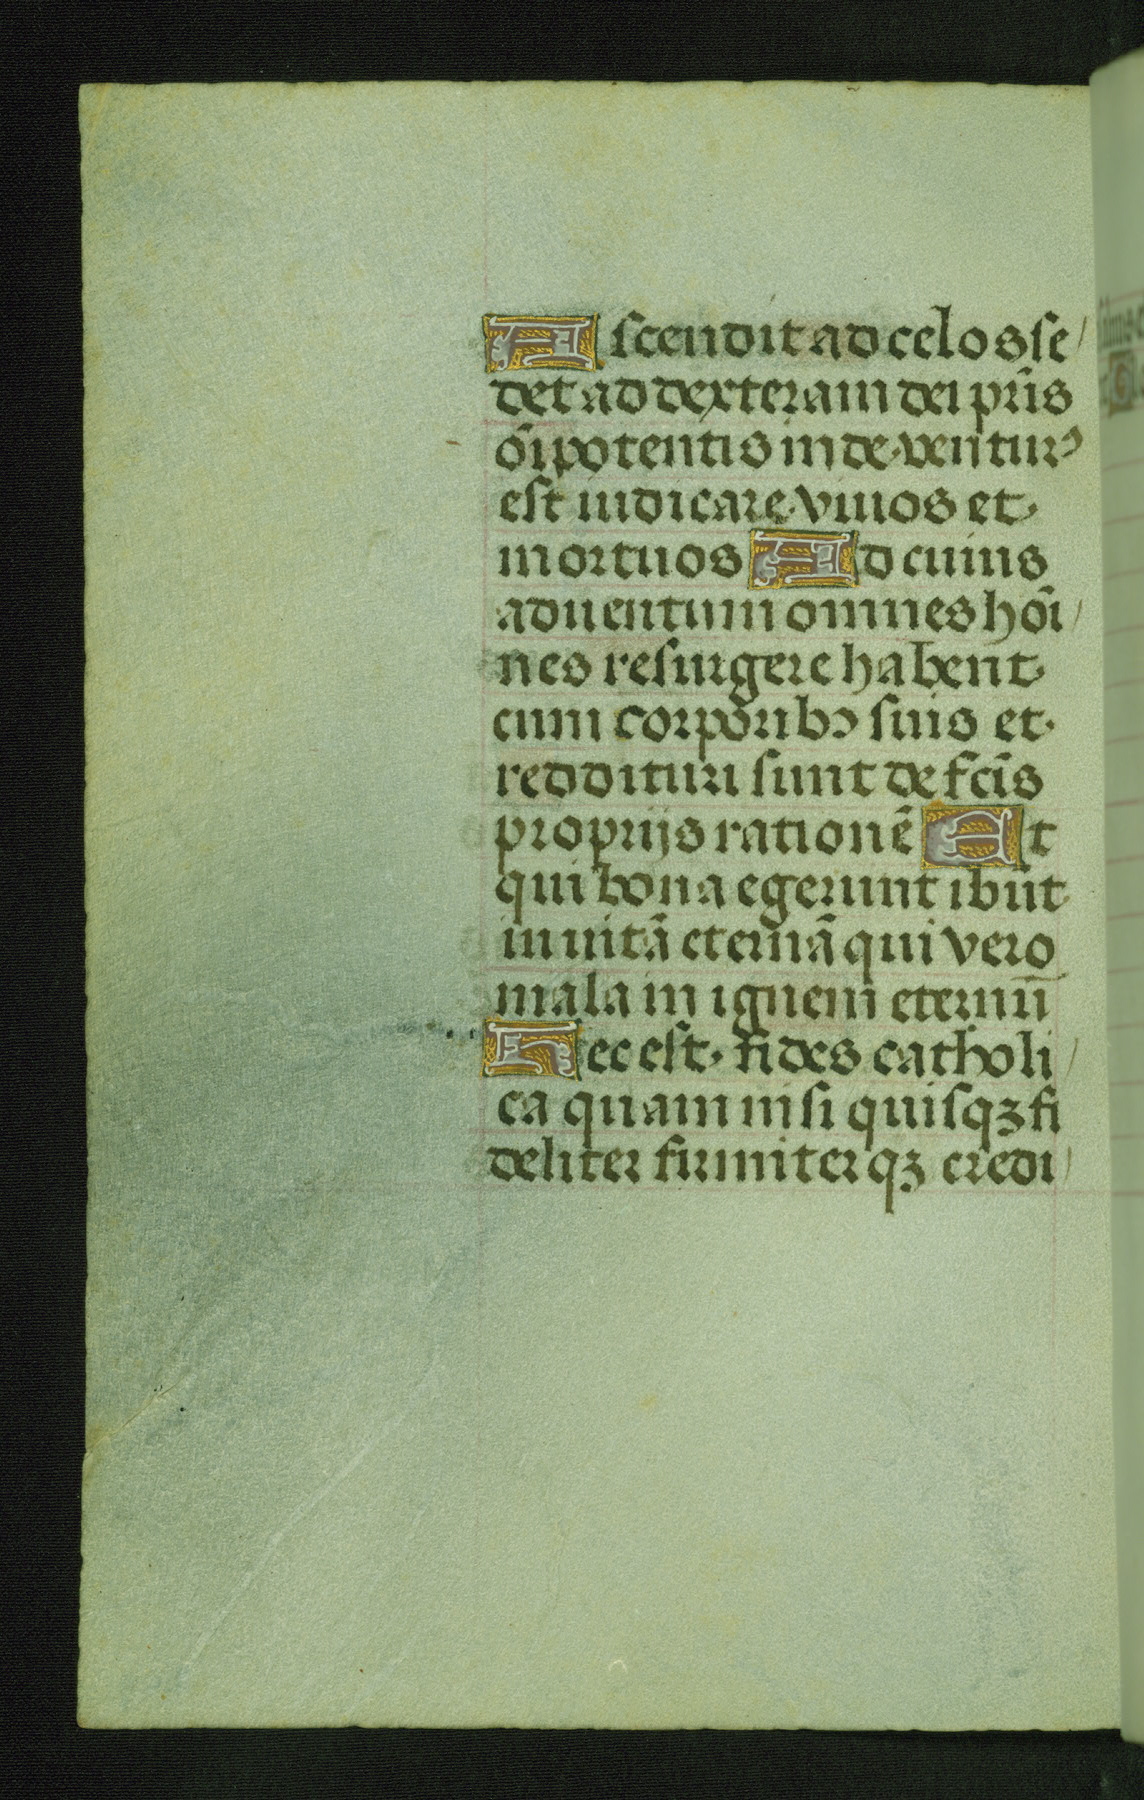 Ascendit ad celos se/
det ad dexteram dei pr̄is
oīpotentis inde ventur⁹
est iudicare viuos et
mortuos Ad cuius
aduentum omnes hoī/
nes resurgere habent
cum corporibꝰ suis et
reddituri sunt de fc̄is
proprijs rationē Et
qui bona egerunt ibūt
in uitā eternā qui vero
mala in ignem eternū
Hec est fides catholi/
ca quam nisi quisqꝫ fi
deliter firmiterqꝫ credi/